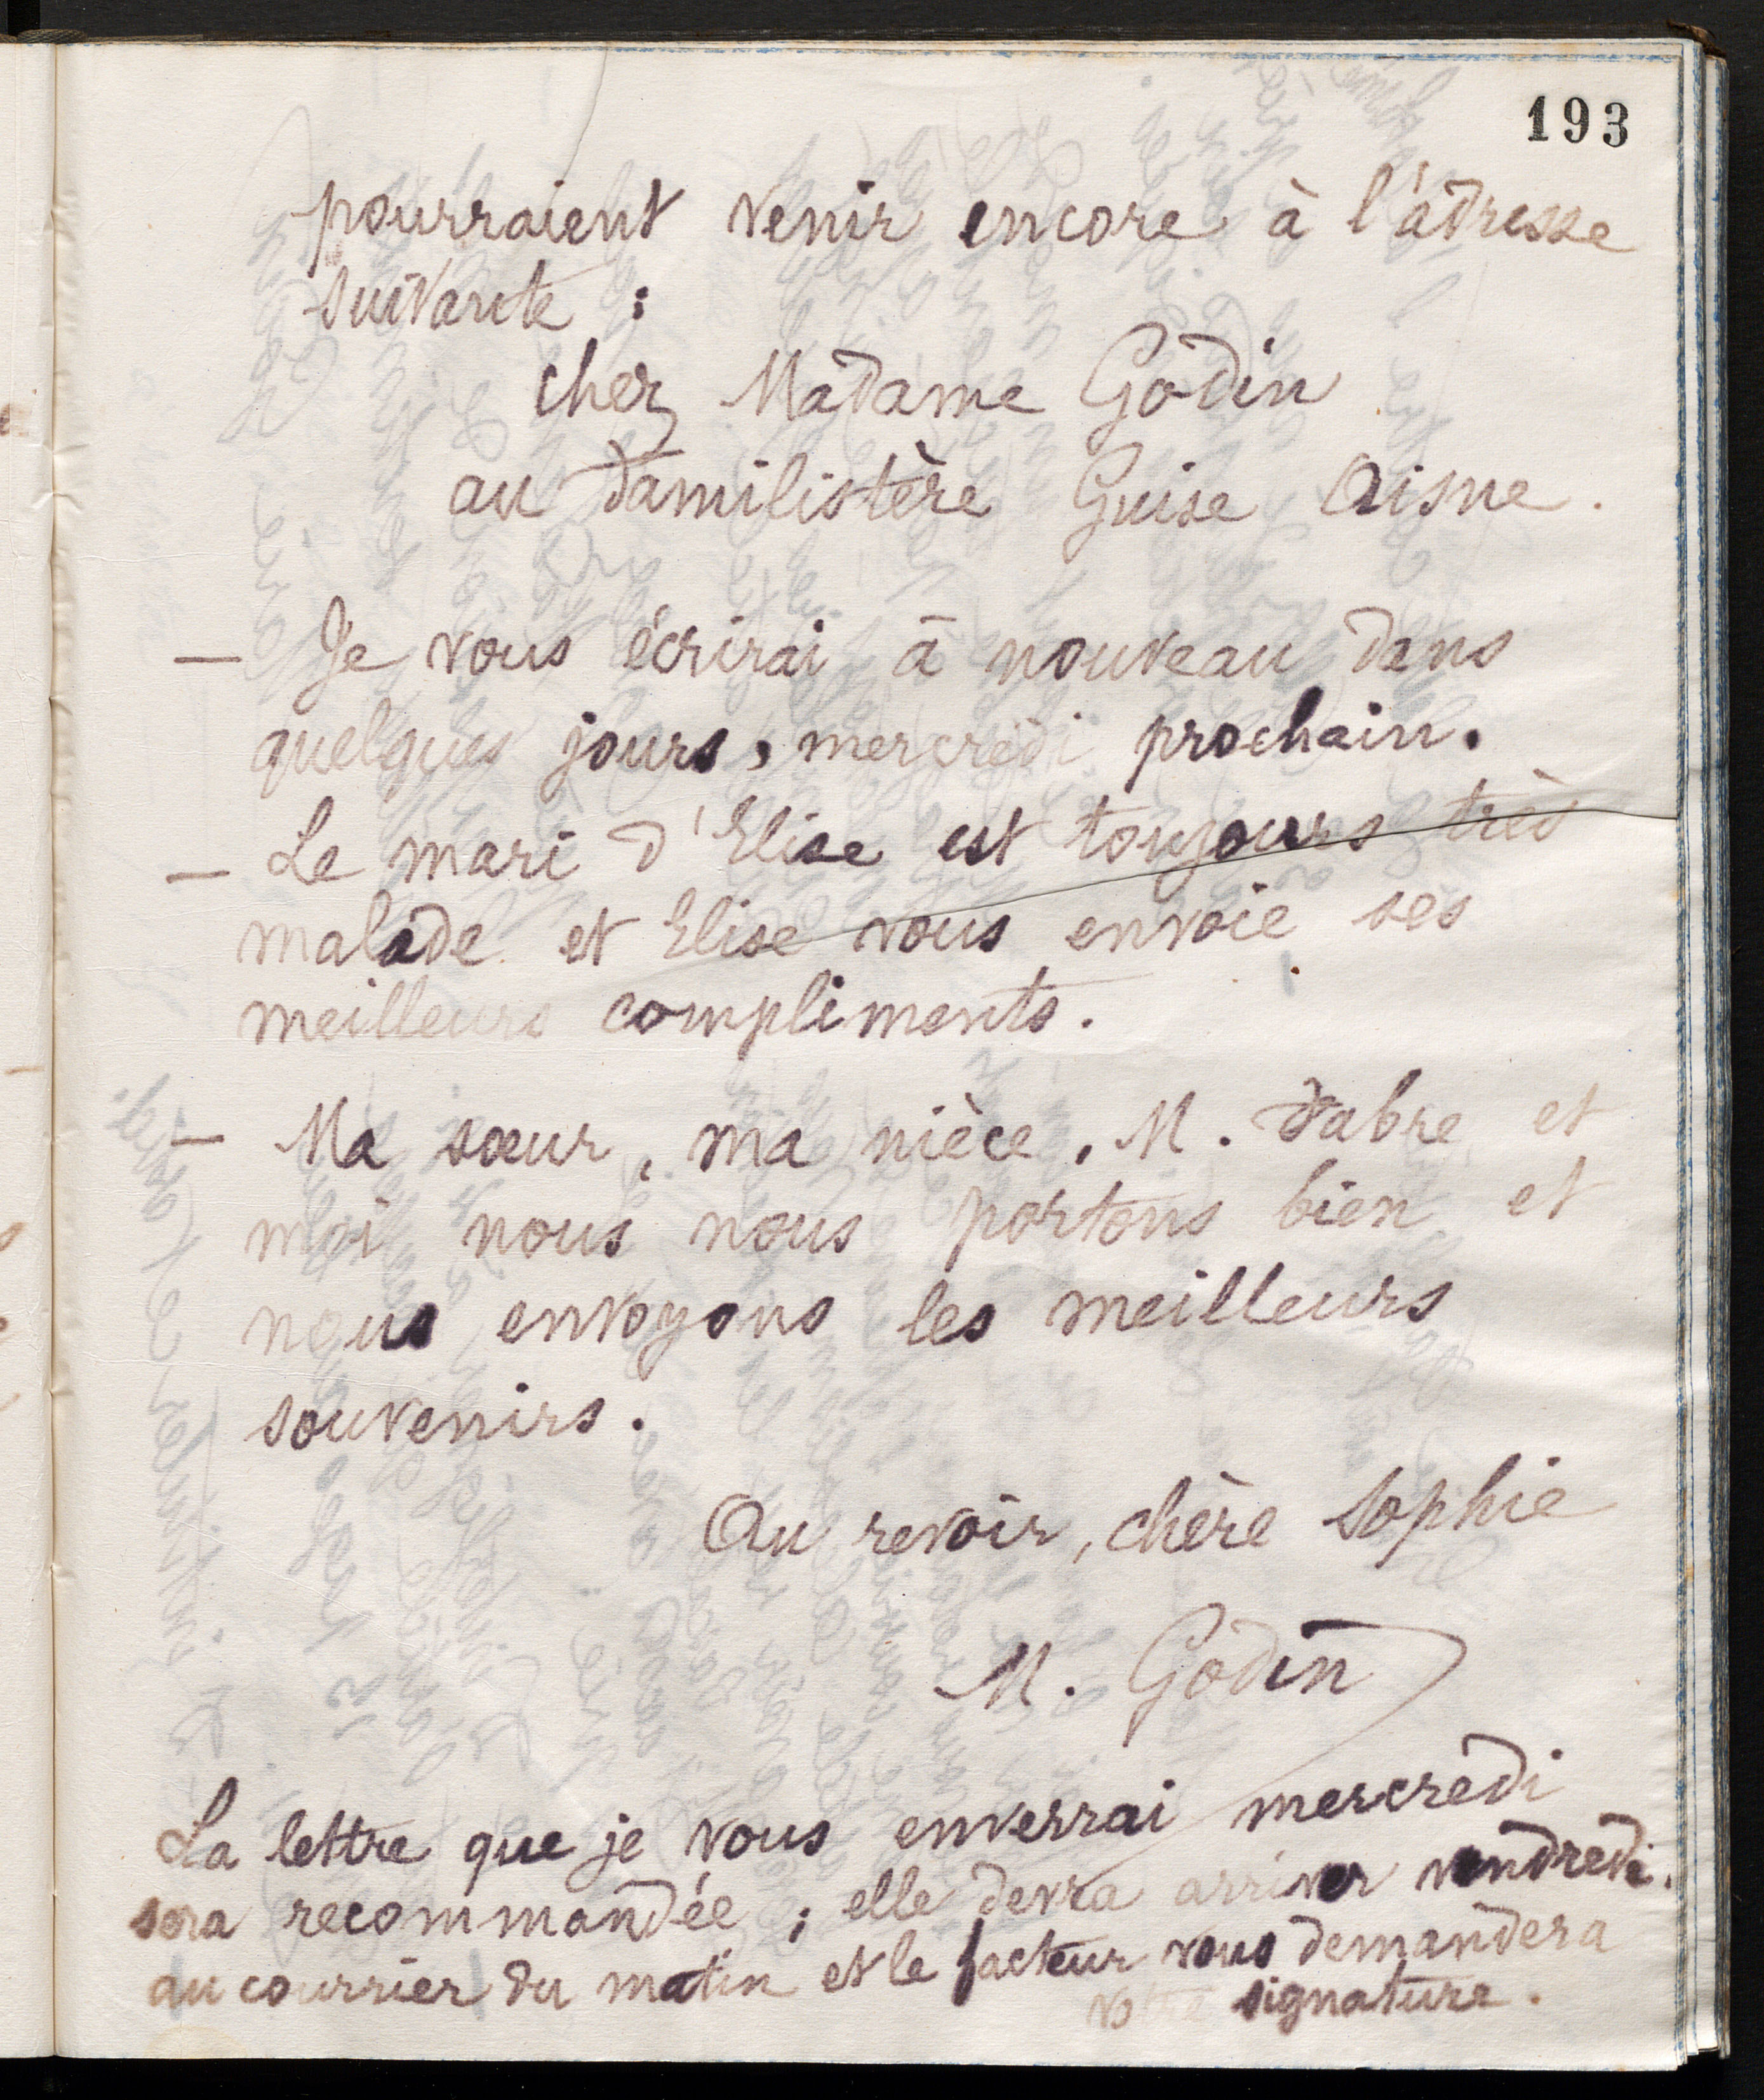 193
pourraient venir encore à l'adresse
suivante :
chez Madame Godin
au Familistère Guise Aisne.
— Je vous écrirai à nouveau dans
quelques jours, mercredi prochain.
— Le mari d'Elise est toujours très
malade et Elise vous envoie ses
meilleurs compliments.
— Ma sœur, ma nièce, M. Fabre et
moi nous nous portons bien et
nous envoyons les meilleurs
souvenirs.
Au revoir, chère Sophie
M. Godin
La lettre que je vous enverrai mercredi
sera recommandée ; elle devra arriver vendredi.
au courrier du matin et le facteur vous demandera
votre signature.